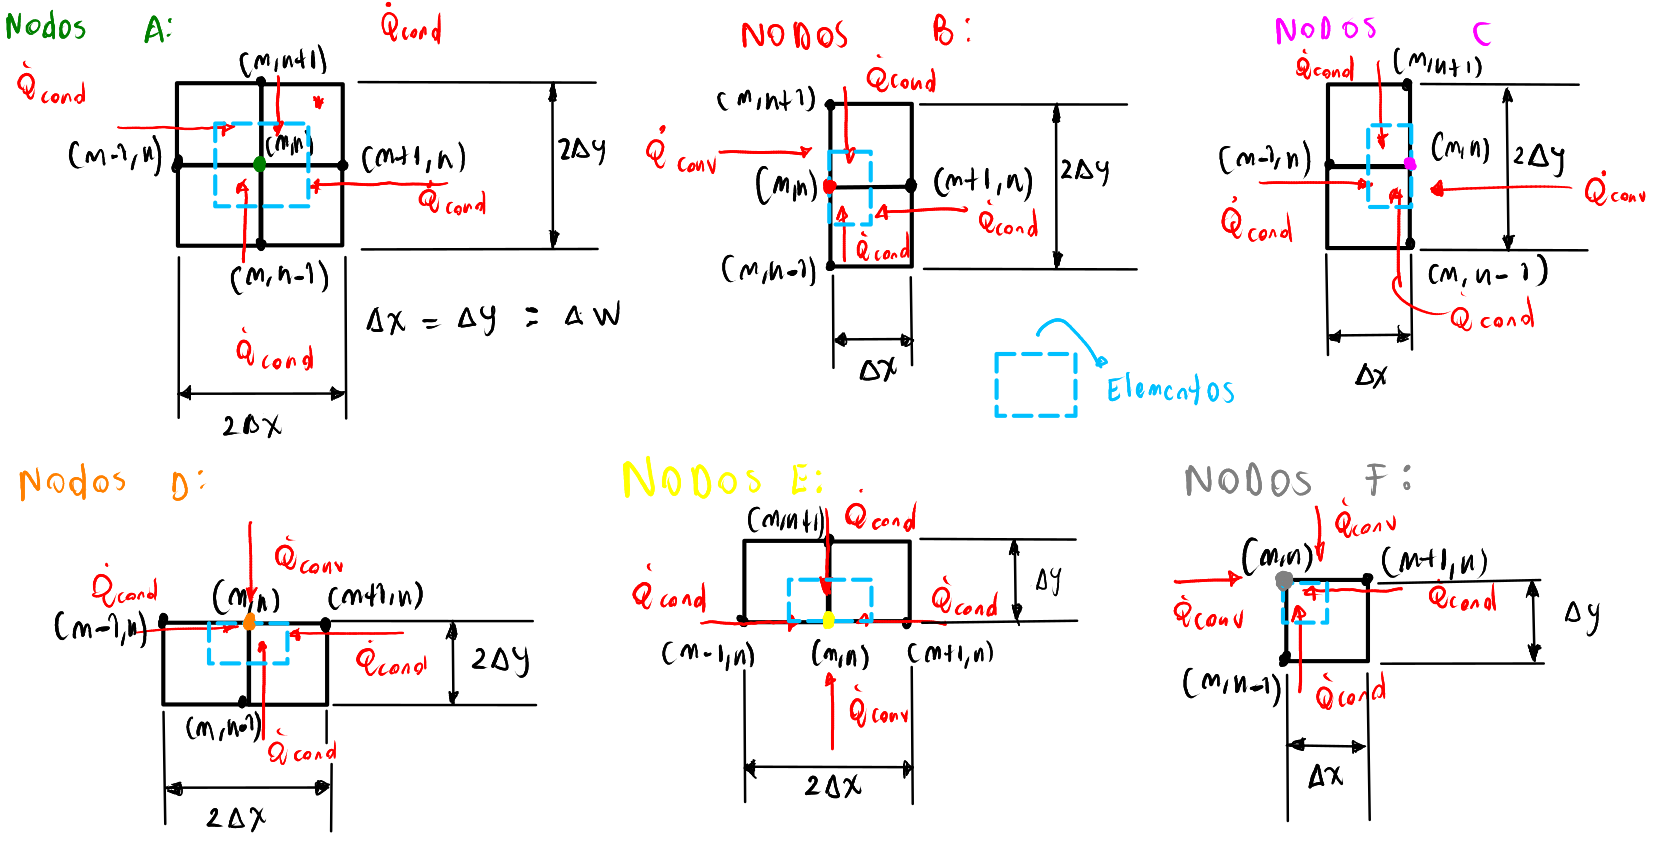 Nodos A:
Q̇cond
(m,n+1)
Q̇cond
(m-1,n)
(m,n)
(m+1,n)
2Δy
Q̇cond
(m,n-1)
Δx = Δy = Δw
Q̇cond
2Δx
NODOS B:
Q̇cond
(m,n+1)
Q̇conv
(m,n)
(m+1,n)
2Δy
Q̇cond
Q̇cond
(m,n-1)
Δx
Elementos
NODOS C
Q̇cond
(m,n+1)
(m-1,n)
(m,n)
2Δy
Q̇conv
Q̇cond
(m,n-1)
Q̇cond
Δx
Nodos D:
Q̇conv
Q̇cond
(m,n)
(m+1,n)
(m-1,n)
Q̇cond
2Δy
(m,n-1)
Q̇cond
2Δx
NODOS E:
(m,n+1)
Q̇cond
Q̇cond
Q̇cond
Δy
(m-1,n)
(m,n)
(m+1,n)
Q̇conv
2Δx
NODOS F:
Q̇conv
(m,n)
(m+1,n)
Q̇conv
Q̇cond
Δy
(m,n-1)
Q̇cond
Δx